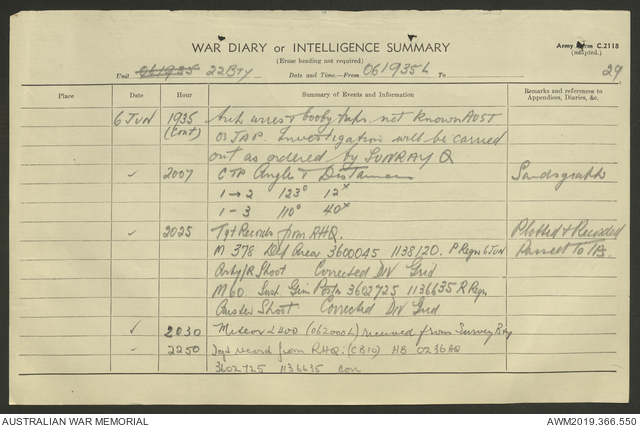 WAR DIARY or INTELLIGENCE SUMMARY
Army Form C.2118
(Erase heading not required)
(adapted.)
Unit 061935 22 BTY Date and Time.—From 061935L To 29
Place Date Hour Summary of Events and Information Remarks and references to Appendices, Diaries, &c.
6 JUN 1935 wires & booby traps not known AUST
(Cont) or JAP. Investigation will be carried
out as ordered by SUNRAY Q
✓ 2007 CTP Angles & Distances
1 → 2 123° 12ˣ
1 - 3 110° 40ˣ
✓ 2025 Tgt Records from RHQ. Plotted & Recorded
M 378 Def Area 3600045 1138120. P Regn 6 JUN Passed to
Shoot Corrected DIV Grid
M60. Gun Postn 3602725 1136635 R Regn
Shoot Corrected DIV Grid
✓ 2030 Meteor 2400 (062000L) received from Survey Bty
✓ 2250 Tgt record from RHQ. (CB10) HB 0236HQ
3602725 1136635
AUSTRALIAN WAR MEMORIAL
AWM2019.366.550